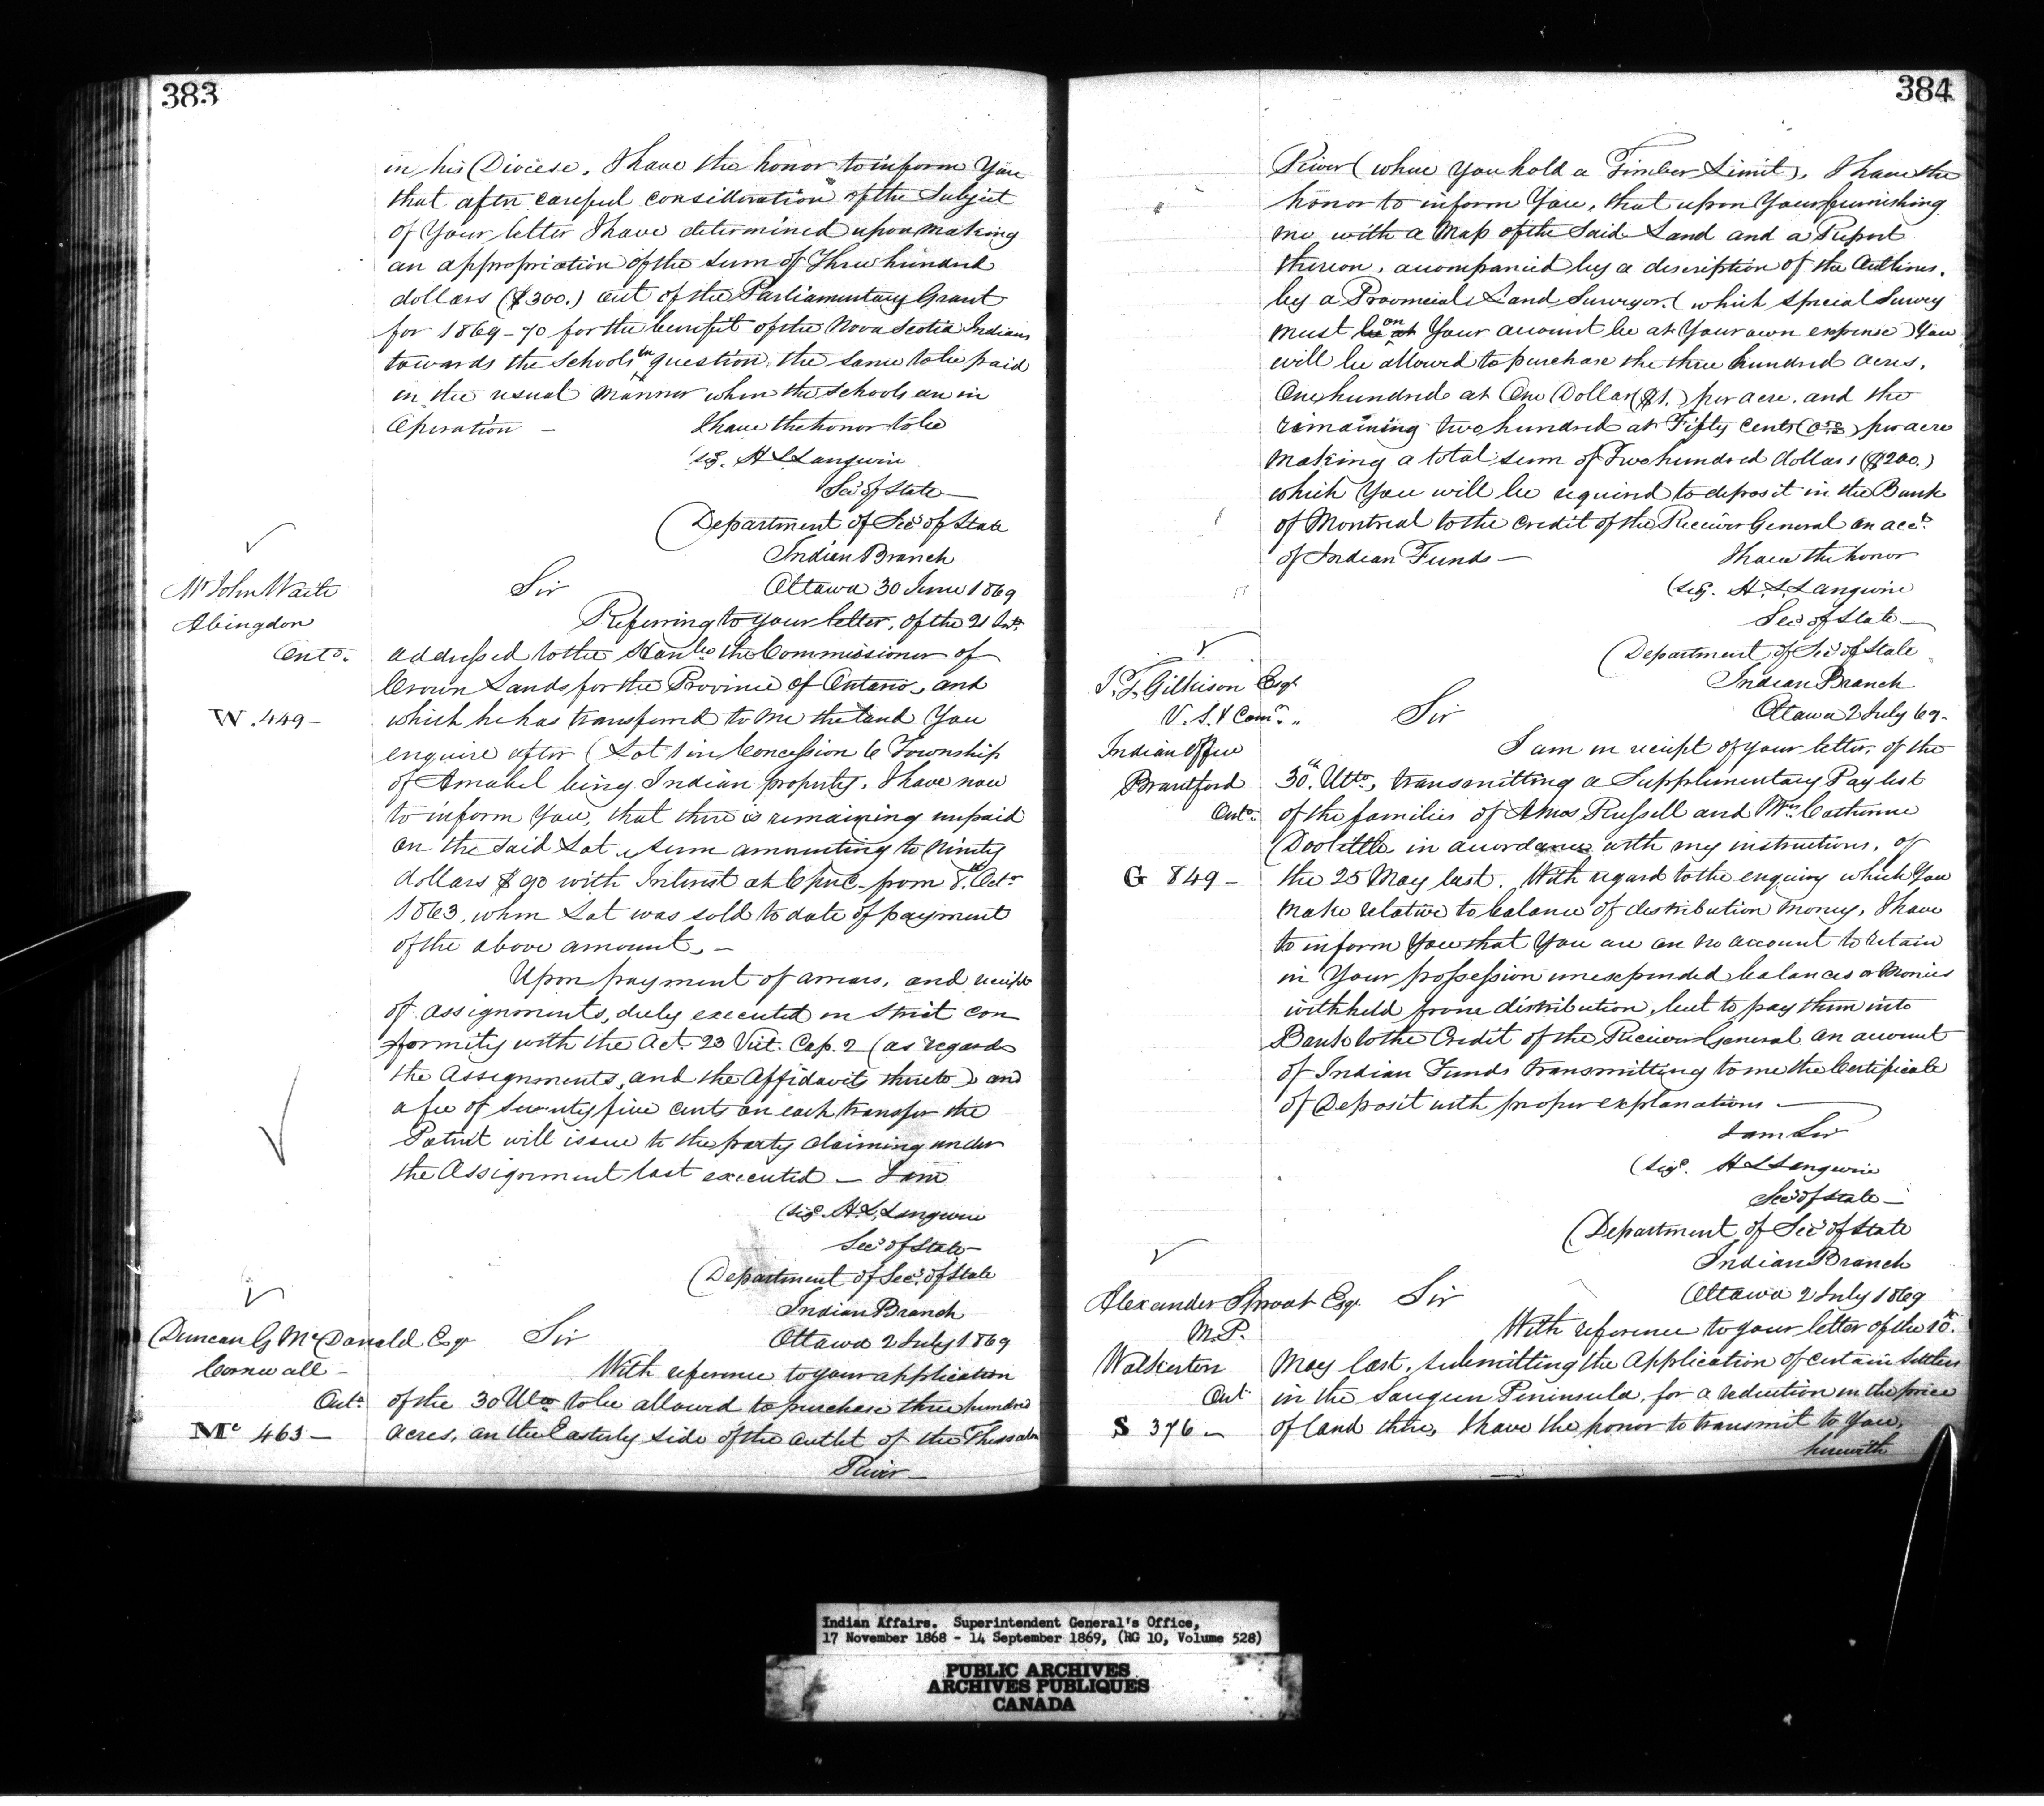 383
in his Diocese. I have the honor to inform You
that after careful consideration of the Subject
of Your letter I have determined upon making
an appropriation of the sum of Three hundred
dollars ($300.) out of the Parliamentary Grant
for 1869-70 for the benefit of the Nova Scotia Indians
towards the Schools in question, the same to be paid
in the usual manner when the schools are in
Operation — I have the honor to be
sig. H L Langevin
Sec of State
Department of Sec of State
Indian Branch
Mr John Waite Sir Ottawa 30 June 1869
Abingdon Referring to your letter, of the 21 Inst.
Onto. addressed to the Honble the Commissioner of
Crown Lands for the Province of Ontario, and
W. 449 - which he has transferred to me the land You
enquire after (Lot 1 in Concession 6 Township
of Amabel being Indian property. I have now
to inform You, that there is remaining unpaid
on the said Lot a sum amounting to Ninety
dollars $90 with Interest at 6 pr c. from 8th Octr
1863, when Lot was sold to date of payment
of the above amount. —
Upon payment of arrears, and receipt
of assignments, duly executed in strict con
formity with the Act. 23 Vict. Cap. 2 (as regards
the Assignments, and the Affidavits thereto) and
a fee of Seventy five cents on each transfer the
Patent will issue to the party claiming under
the Assignment last executed — I am
(sigd H.L. Langevin
Secy of State
Department of Secy. of State
Indian Branch
Duncan G McDonald Esqr Sir Ottawa 2 July 1869
Cornwall - With reference to your application
Onto. of the 30 Ulto to be allowed to purchase three hundred
Mc 463 - acres, on the Easterly side of the outlet of the Thessalon
River —
384
River (where you hold a Timber Limit). I have the
honor to inform You, that upon Your furnishing
me with a Map of the Said Land and a Report
thereon, accompanied by a description of the Outlines,
by a Provincial Land Surveyor, (which special Survey
must be at on Your account be at Your own expense) You
will be allowed to purchase the three hundred acres.
One hundred at One Dollar ($1.) per acre, and the
remaining two hundred at Fifty Cents (0.50) per acre
making a total sum of Two hundred dollars ($200.)
which You will be required to deposit in the Bank
of Montreal to the Credit of the Receiver General on acct.
of Indian Funds — I have the honor
(sig. H. L. Langevin
Sec of State
Department of Sec of State
J. T. Gilkison Esqr Indian Branch
V. S. & Comr. " Sir Ottawa 2 July 69.
Indian Office I am in receipt of your letter, of the
Brantford 30th Ulto, transmitting a Supplimentary Pay list
Onto. of the families of Amos Russell and Mrs Catherine
Doolittle in accordance with my instructions, of
G 849 - the 25 May last. With regard to the enquiry which You
make relative to balance of distribution money, I have
to inform You that You are on no account to retain
in Your possession unexpended balances or Monies
withheld from distribution, but to pay them into
Bank to the Credit of the Receiver General on account
of Indian Funds transmitting to me the Certificate
of Deposit with proper explanations —
I am Sir
(sigd. H L Langevin
Secy of State -
Department of Sec of State
Indian Branch
Alexander Sproat Esqr. Sir Ottawa 2 July 1869
M.P. With reference to your letter of the 10th.
Walkerton May last, submitting the Application of certain Settlers
Ont in the Saugeen Peninsula, for a reduction in the price
S 376 - of land there, I have the honor to transmit to You,
herewith
Indian Affairs. Superintendent General's Office,
17 November 1868 - 14 September 1869, (RG 10, Volume 528)
PUBLIC ARCHIVES
ARCHIVES PUBLIQUES
CANADA